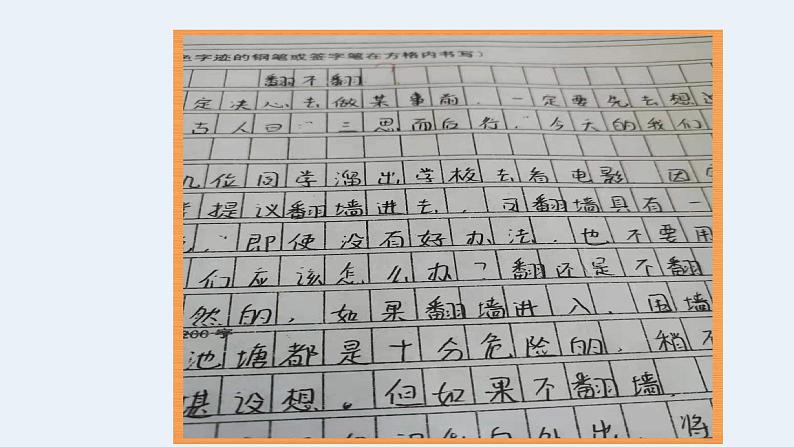 色字迹的钢笔或签字笔在方格内书写）
翻不翻
定决心去做某事前，一定要先去想
古人曰：“三思而后行，”今天的我们
几位同学溜出学校去看电影 因
提议翻墙进去，可翻墙具有一
，即使没有好办法，也不要用
们应该怎么办？翻还是不翻
然的，如果翻墙进入，围墙
200字
池塘都是十分危险的，稍不
堪设想。但如果不翻墙，
外出，将